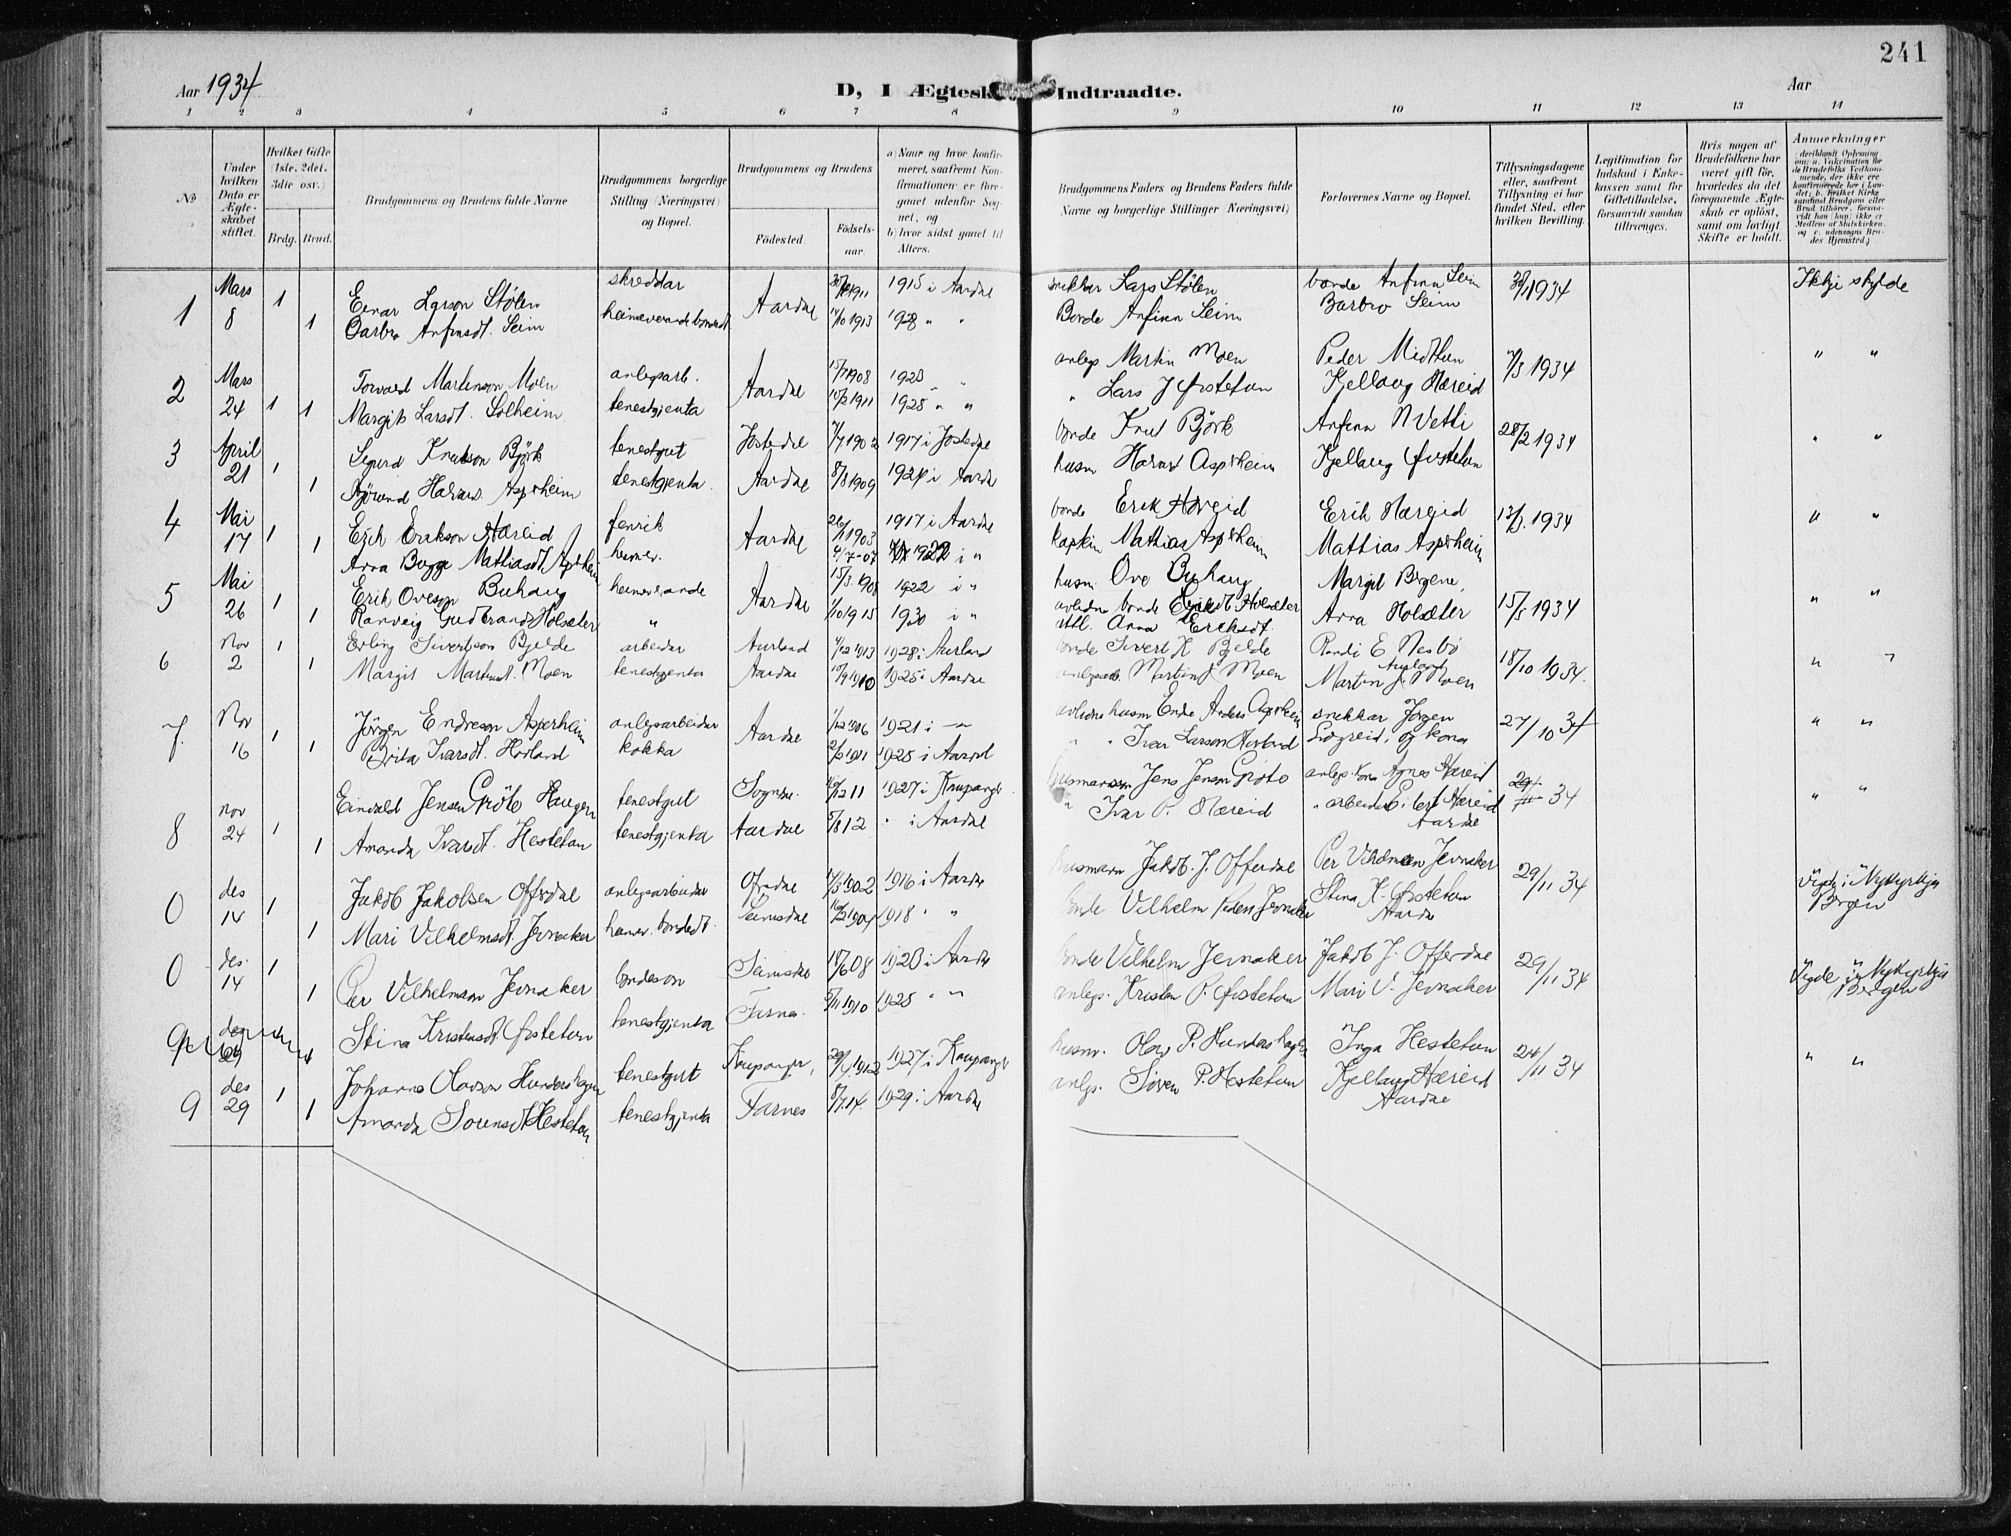 241
Aar 1934
D, I Ægtesk Indtraadte.
Aar
1 2 3 4 5 6 7 8 9 10 11 12 13 14
No
Under hvilken Dato er Ægteskabet stiftet.
Hvilket Gifte (1ste, 2det, 3die osv.)
Brdg. Brud.
Brudgommens og Brudens fulde Navne
Brudgommens borgerlige Stilling (Næringsvei) og Bopæl.
Brudgommens og Brudens
Födested.
Födselsaar.
a) Naar og hvor konfirmeret, saafremt Konfirmationen er foregaaet udenfor Sognet, og
b) hvor sidst gaaet til Alters.
Brudgommens Faders og Brudens Faders fulde Navne og borgerlige Stillinger (Næringsvei)
Forlovernes Navne og Bopæl.
Tillysningsdagene eller, saafremt Tillysning ei har fundet Sted, efter hvilken Bevilling.
Legitimation for Indskud i Enkekassen samt for Giftetilladelse, forsaavidt saadan tiltrænges.
Hvis nogen af Brudefolkene har været gift för, hvorledes da det foregaaende Ægteskab er oplöst, samt om lovligt Skifte er holdt.
Anmerkninger
1 Mars 8 1 Einar Larson Stølen skreddar Aardal 1911 1915 i Aardal snekkar Lars Stølen bonde Anfinn Seim 1934 Ikkje skylde
1 Barbro Anfinsdt. Seim 14/10 1913 1928 " " Bonde Anfinn Seim Barbro Seim
2 Mars 24 1 Torvald Martinson Moen anlegsarb. Aardal 15/7 1908 1923 " anlegs Martin Moen Peder Midttun 7/3 1934 " "
1 Margit Larsdt. Solheim tenestgjenta 11/2 1911 1925 " " " Lars J Øvstetun Kjellaug Hæreid
3 April 21 1 Sigurd Knutson Björk tenestgut Jostedal 1917 i Jostedal bonde Knut Björk Anfinn N Vetti 28/2 1934 " "
1 tenestgjenta Aardal 8/8 1909 1924 i Aardal husm Asperheim Kjellaug Øvstetun
4 Mai 17 1 Erik Erikson Hæreid fenrik Aardal 1903 1917 i Aardal bonde Erik Hæreid Erik Hæreid 1934 " "
1 Anna Bugge Mathiasdt. Asperheim heimev. 4/7-07 1922 i " kaptein Mathias Asperheim Mathias Asperheim
5 Mai 26 1 Erik Oveson Buhaug heimeverande Aardal 15/3 1908 1922 i " husm. Ove Buhaug Margit 15/5 1934 " "
1 Ranveig Gudbrandsd Holsæter " 1/10 1915 1930 i " Anna Holsæter
Anna Eriksdt.
6 Nov 2 1 Erling Sivertson Bjelde arbeidar Aurland 4/12 1913 1928 i Aurland bonde Sivert K Bjelde Randi E Nesbö 18/10 1934. " "
Aurland
1 Margit Martinsdt. Moen tenestgjenta Aardal 1910 1925 i Aardal anlegsarb. Martin J Moen Martin J. Moen
7. Nov 16 1 Jörgen Endreson Asperheim anlegsarbeidar Aardal 1/12 1906 1921 i " avlidne husm Endre Anders Asperheim snekkar Jörgen 27/10 34 " "
1 Brita Ivarsdt. Hovland kokka 1911 1925 i Aardal " " Ivar Larson Hovland og kona
8 nov 24 1 Eindald Jensen Gröto Haugen tenestgut Sogndal 11 1927 i Kaupanger husmann Jens Jensen Gröto anlegs kona Agnes Hæreid 34 " "
1 Amanda Ivarsdt. Hestetun tenestgjenta Aardal 5/8 12 " i Aardal " Ivar P. Hæreid " arbeidar Eilert Hæreid
Aardal
0 des 14 1 Jakob Jakobsen Offerdal anlegsarbeidar Ofredal 1902 1916 i Aardal husmann Jakob. J. Offerdal Per Vilhelmson Jevnaker 29/11 34 Vigde i Nykyrkja Bergen
1 Mari Vilhelmsdt. Jevnaker heimev. bondedt. Seimsdal 1904 1918 " " bonde Vilhelm Peders Jevnaker Stina K. Øvstetun
Aardal
0 des. 14 1 Per Vilhelmson Jevnaker bondeson Seimsdal 18/6 08 1923 i Aardal bonde Vilhelm Jevnaker Jakob J. Offerdal 29/11 34 Vigde i Nykyrkja Bergen
1 Stina Kristensdt. Øvstetun tenestgjenta Farnes 5/11 1910 1925 " " anlegs. Kristen P. Øvstetun Mari V. Jevnaker
9 des 29 1 Johannes Olavson Hundershagen tenestgut Kaupanger, 29/4 1912 1927 i Kaupanger husm. Olav P. Hundershagen Inga Hestetun 24/11 34 " "
1 Amanda Sörensdt. Hestetun tenestgjenta Farnes 14. 1929 i Aardal anlegs. Sören P. Hestetun Kjellaug Hæreid
Aardal